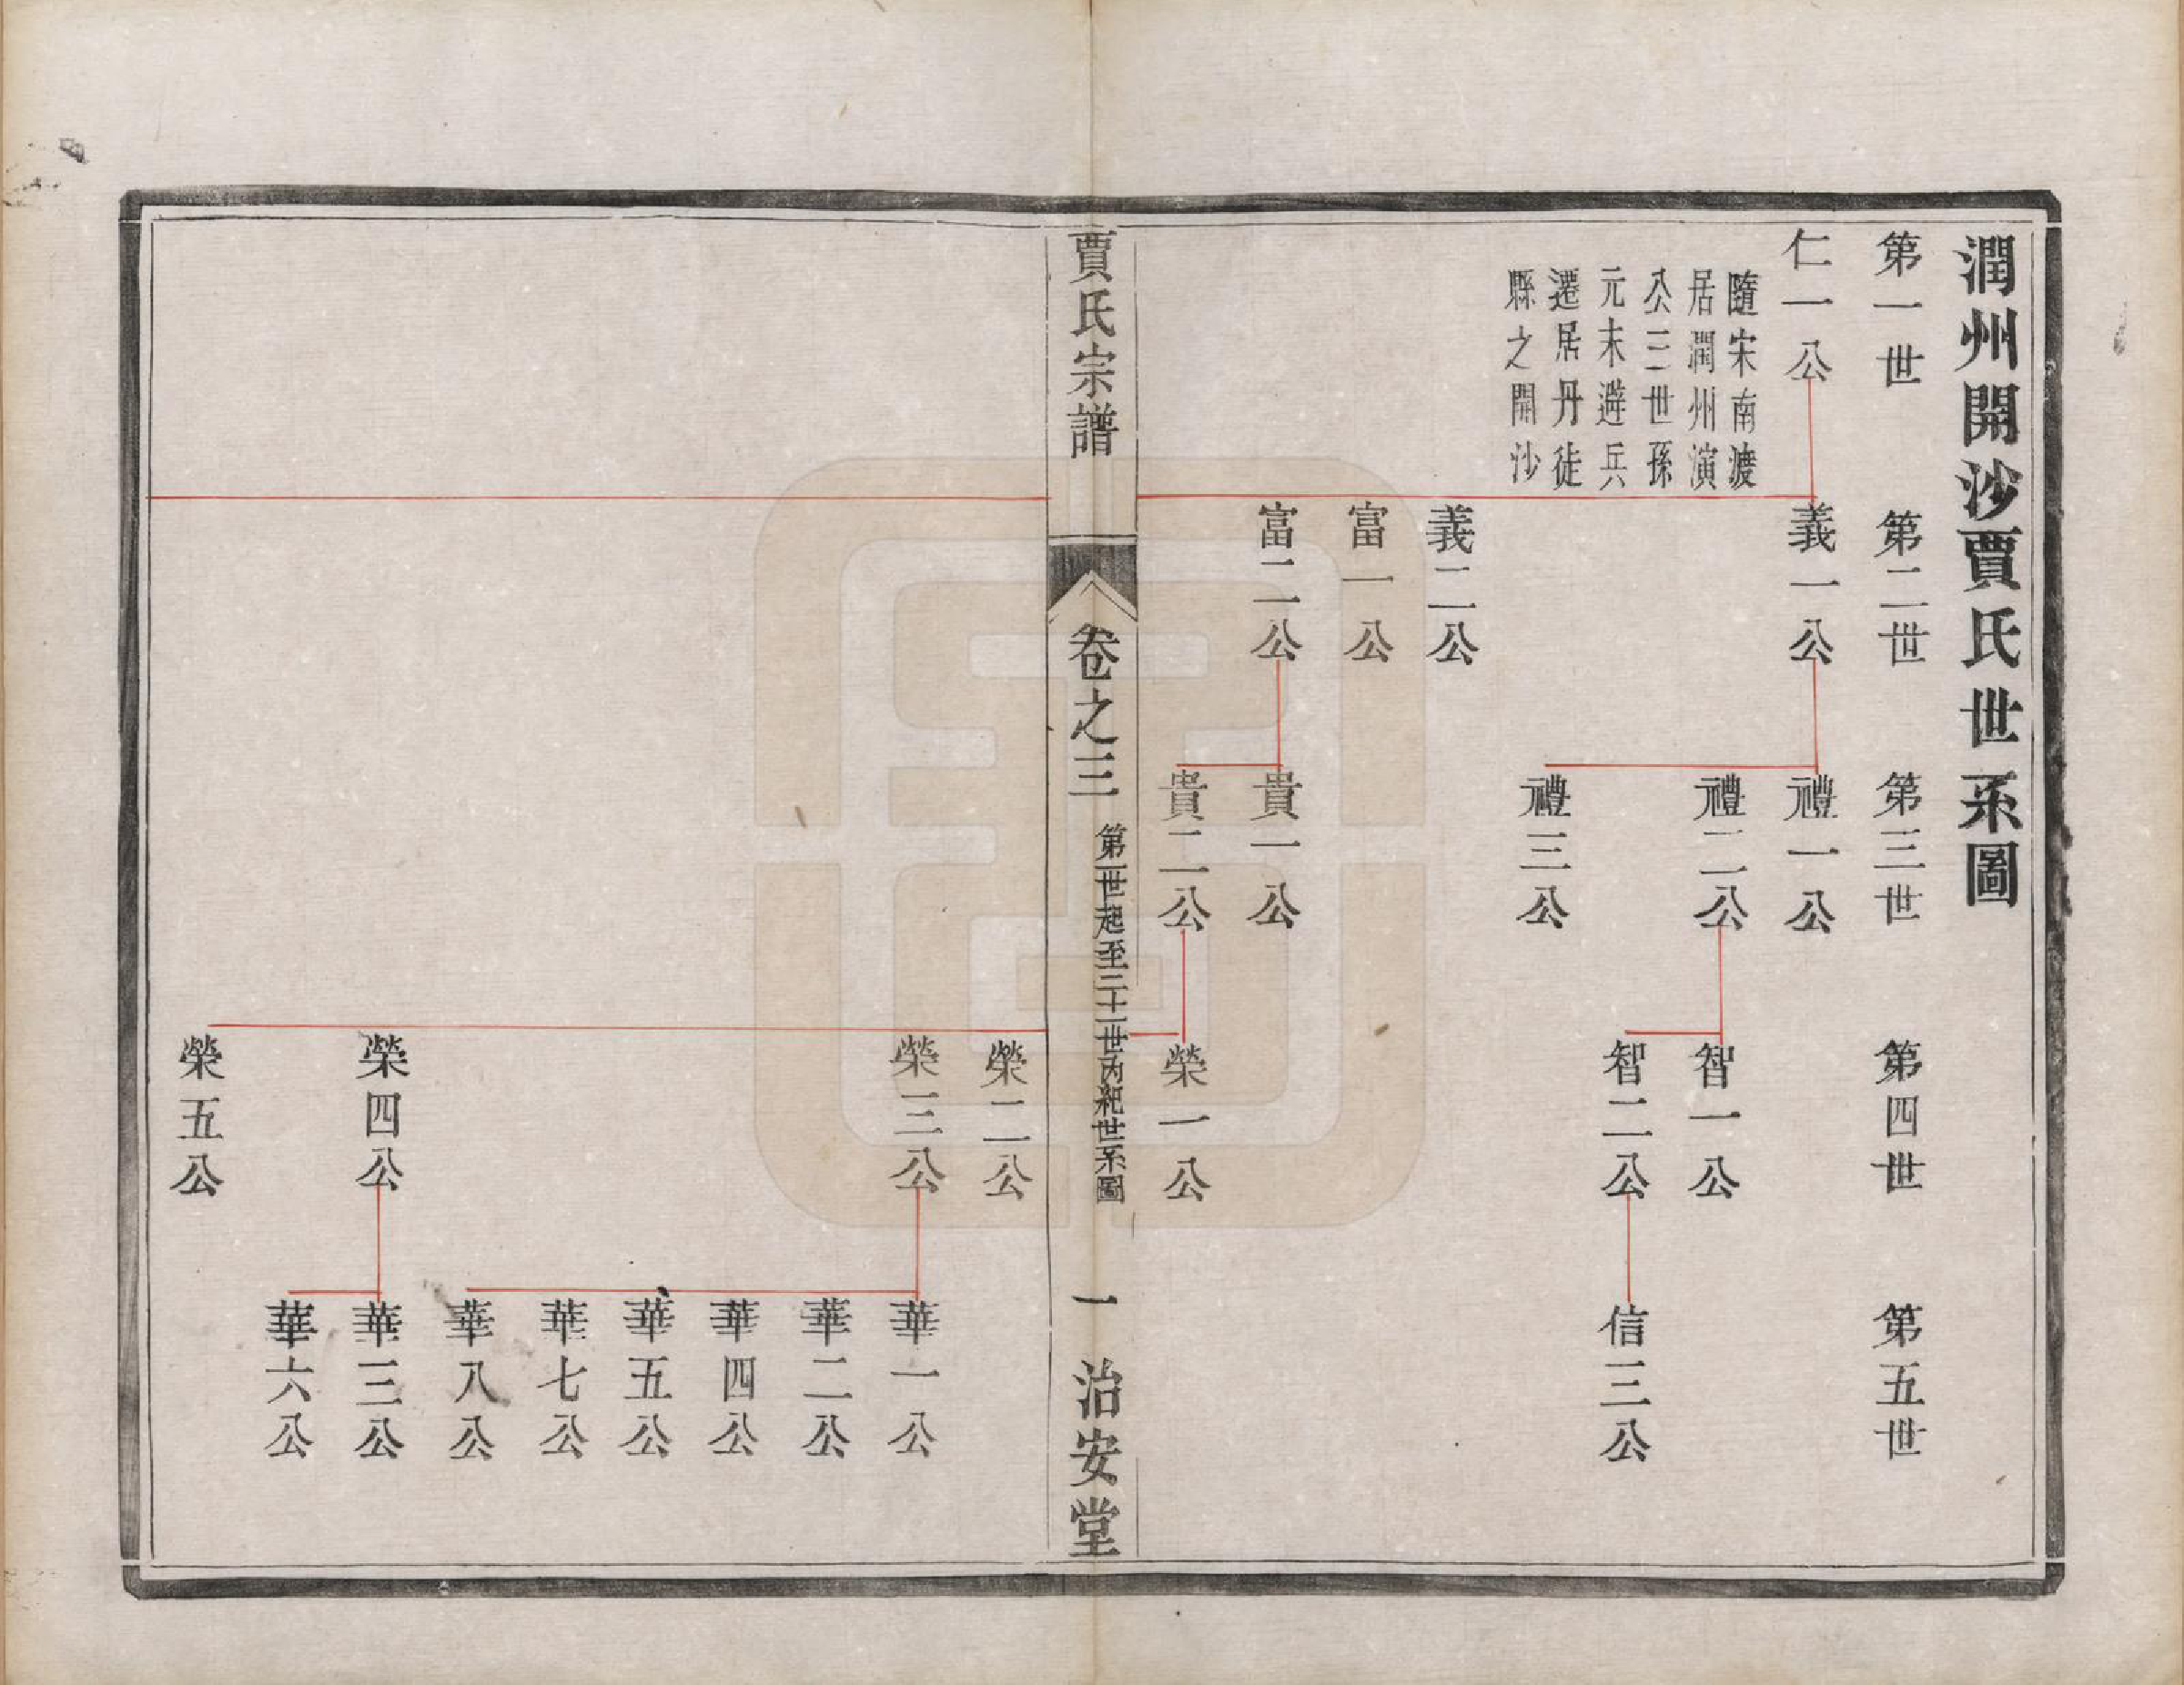 潤州開沙賈氏世系圖
第一世
第二世
第三世
第四世
第五世
仁一公
隨宋南渡
居潤州演
公三世孫
元末避兵
遷居丹徒
縣之開沙
義一公
義二公
富一公
富二公
禮一公
禮二公
禮三公
貴一公
貴二公
智一公
智二公
榮一公
信三公
賈氏宗譜
卷之三
第一世起至二十一世丙紀世系圖
一
治安堂
榮二公
榮三公
榮四公
榮五公
華一公
華二公
華四公
華五公
華七公
華八公
華三公
華六公